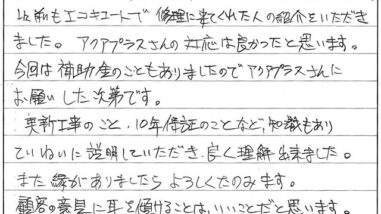 以前もエコキュートで修理に来てくれた人の紹介をいただき
ました。アクアプラスさんの対応は良かったと思います。
今回は補助金のこともありましたのでアクアプラスさんに
お願いした次第です。
更新工事のこと、10年保証のことなど、知識もあり
ていねいに説明していただき、良く理解出来ました。
また縁がありましたらよろしくたのみます。
顧客の意見に耳を傾けることはいいことだと思います。